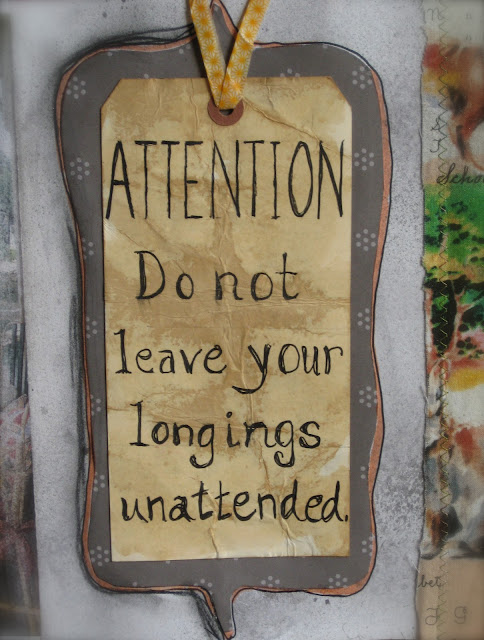 ATTENTION
Do not
leave your
longings
unattended.